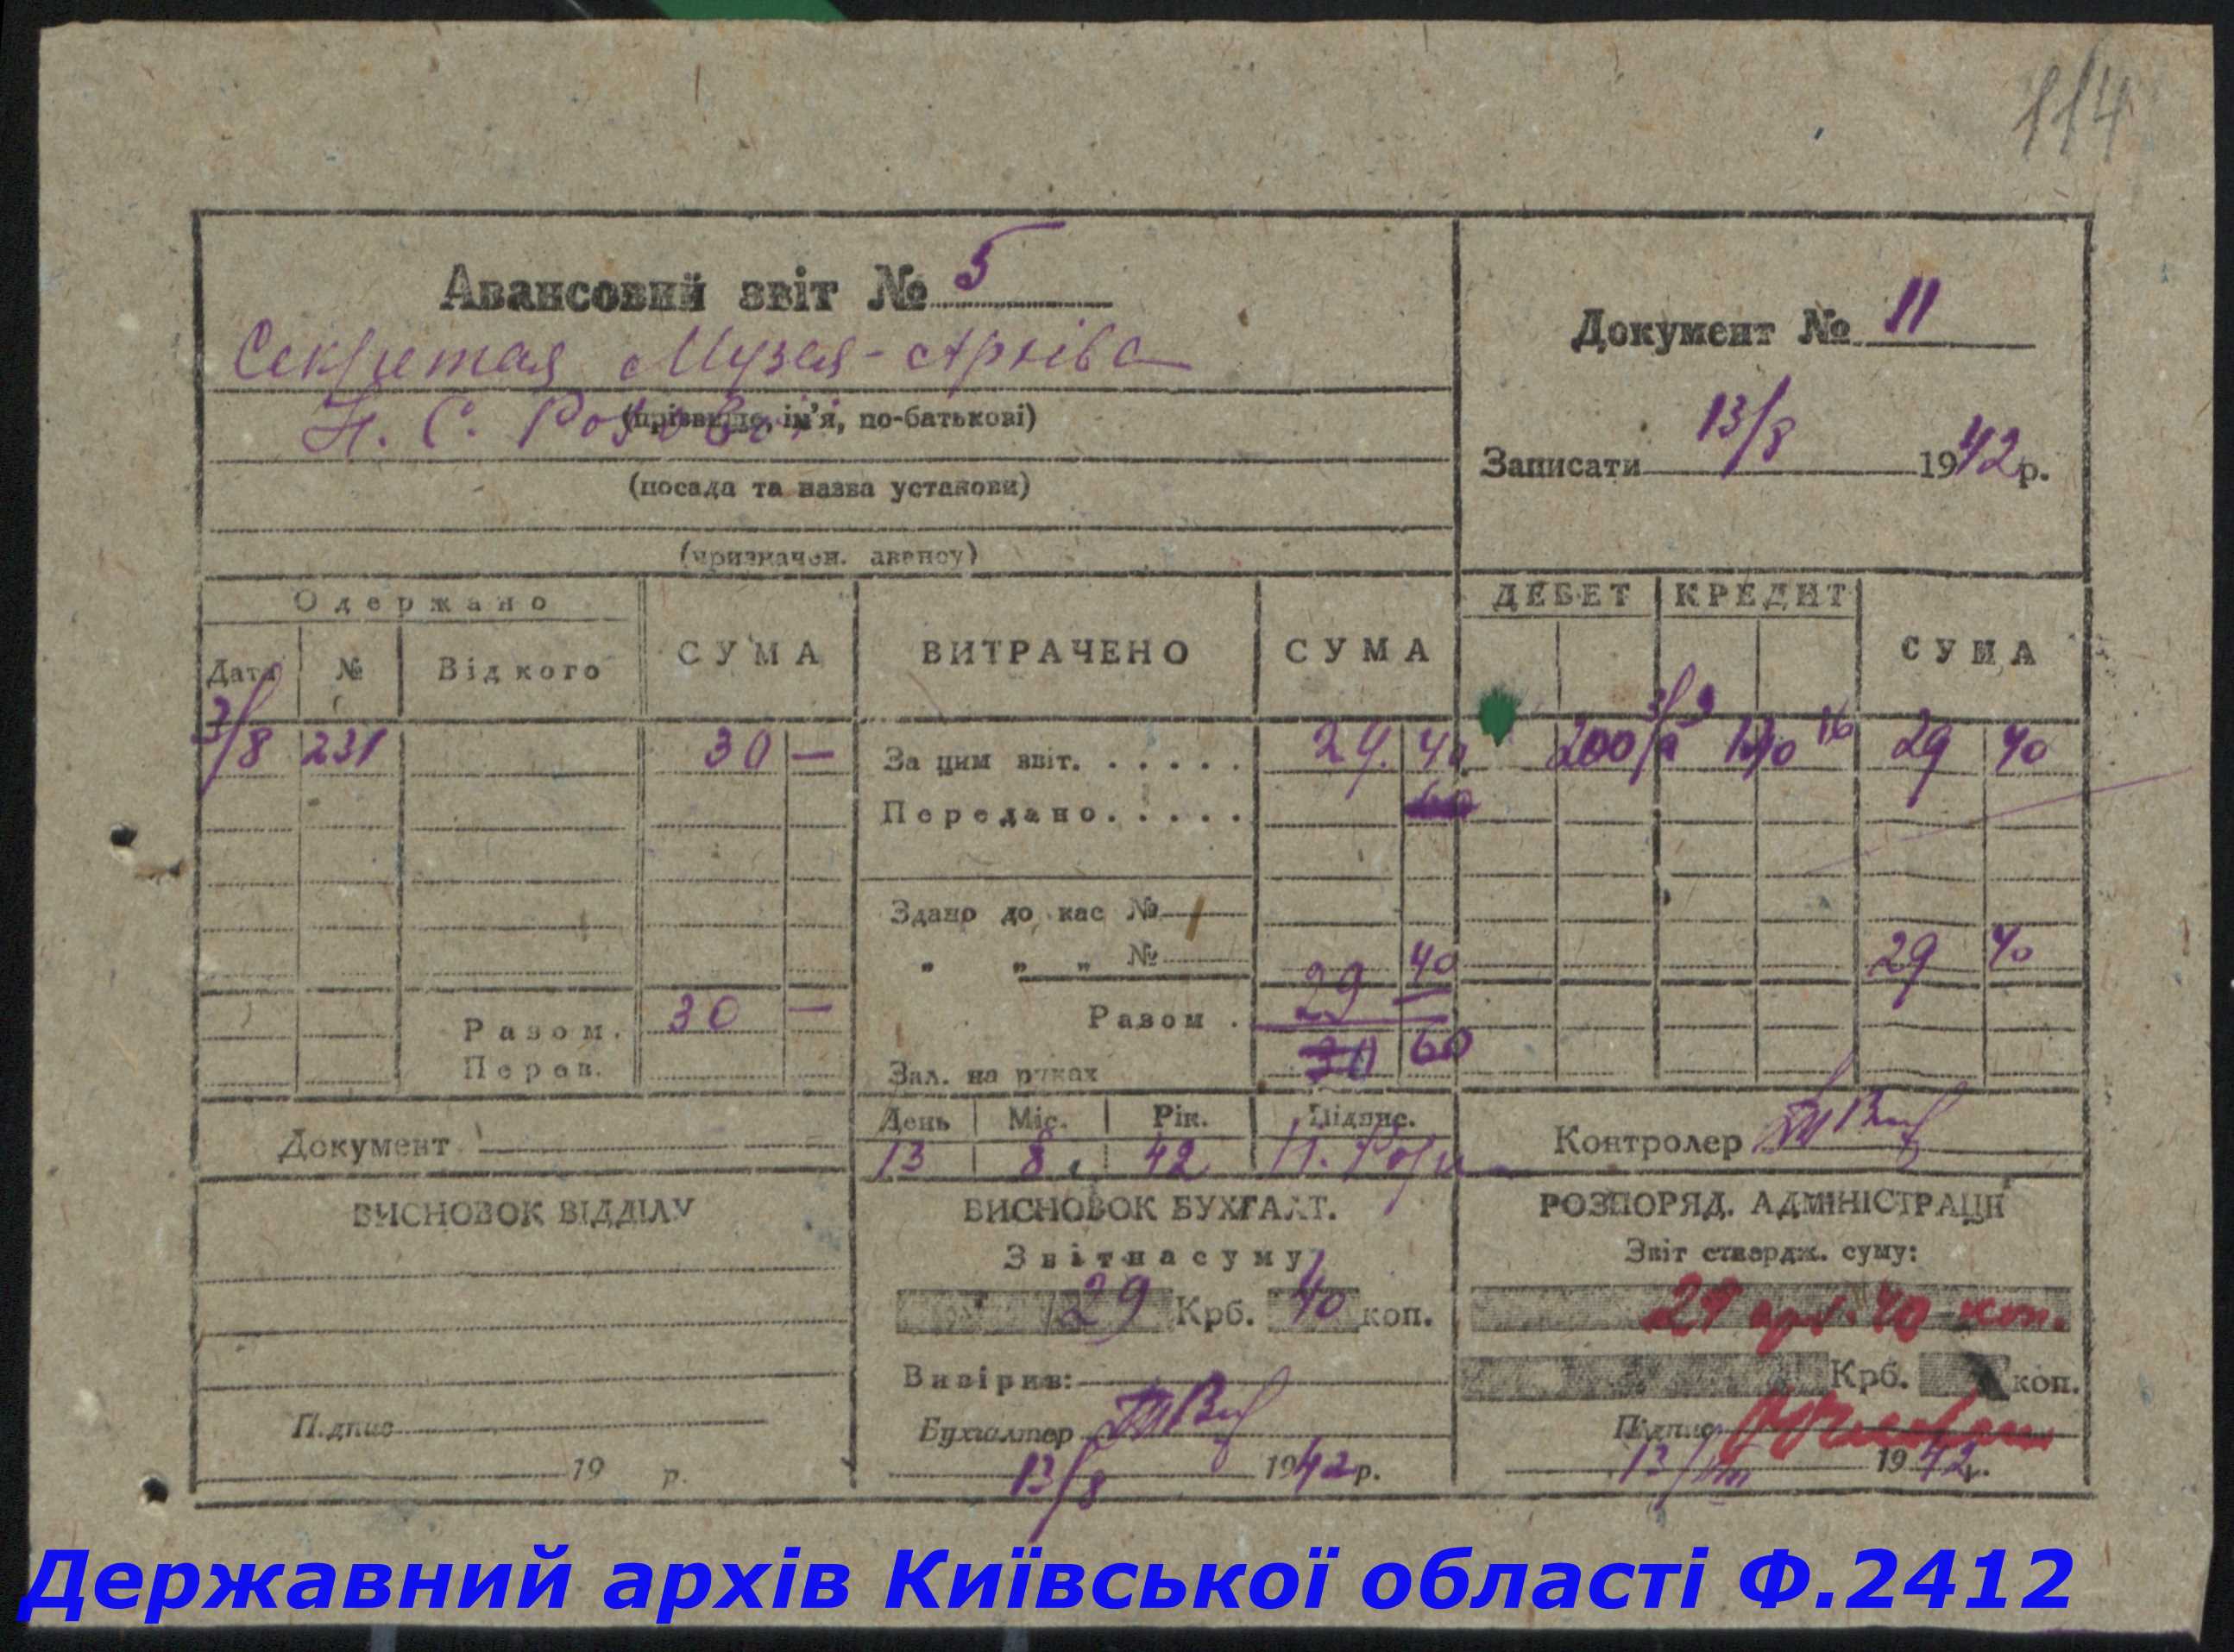 114
Авансовий звіт № 5
Секретая Музея-Архіва
Н. С.
(прізвище, ім'я, по-батькові)
(посада та назва установи)
(призначен. авансу)
Документ № 11
Записати 13/8 1942 р.
Одержано СУМА ВИТРАЧЕНО СУМА ДЕБЕТ КРЕДИТ СУМА
Дата № Від кого
3/8 231 30 — За цим звіт. 29. 40 200 29 40
Передано
Здано до кас №
" " " № 40 29 40
Разом. 30 — Разом. 29
Перев. Зал. на руках 60
День Міс. Рік. Підпис.
Документ 13 8 42 Контролер
ВИСНОВОК ВІДДІЛУ
Підпис
19 р.
ВИСНОВОК БУХГАЛТ.
Звіт на суму
29 Крб. 40 коп.
Вивірив:
Бухгалтер
13/8 1942 р.
РОЗПОРЯД. АДМІНІСТРАЦІЇ
Звіт ствердж. суму:
29 крб. 40 коп.
Крб. коп.
Підпис
13/VIII 1942 р.
Державний архів Київської області Ф.2412